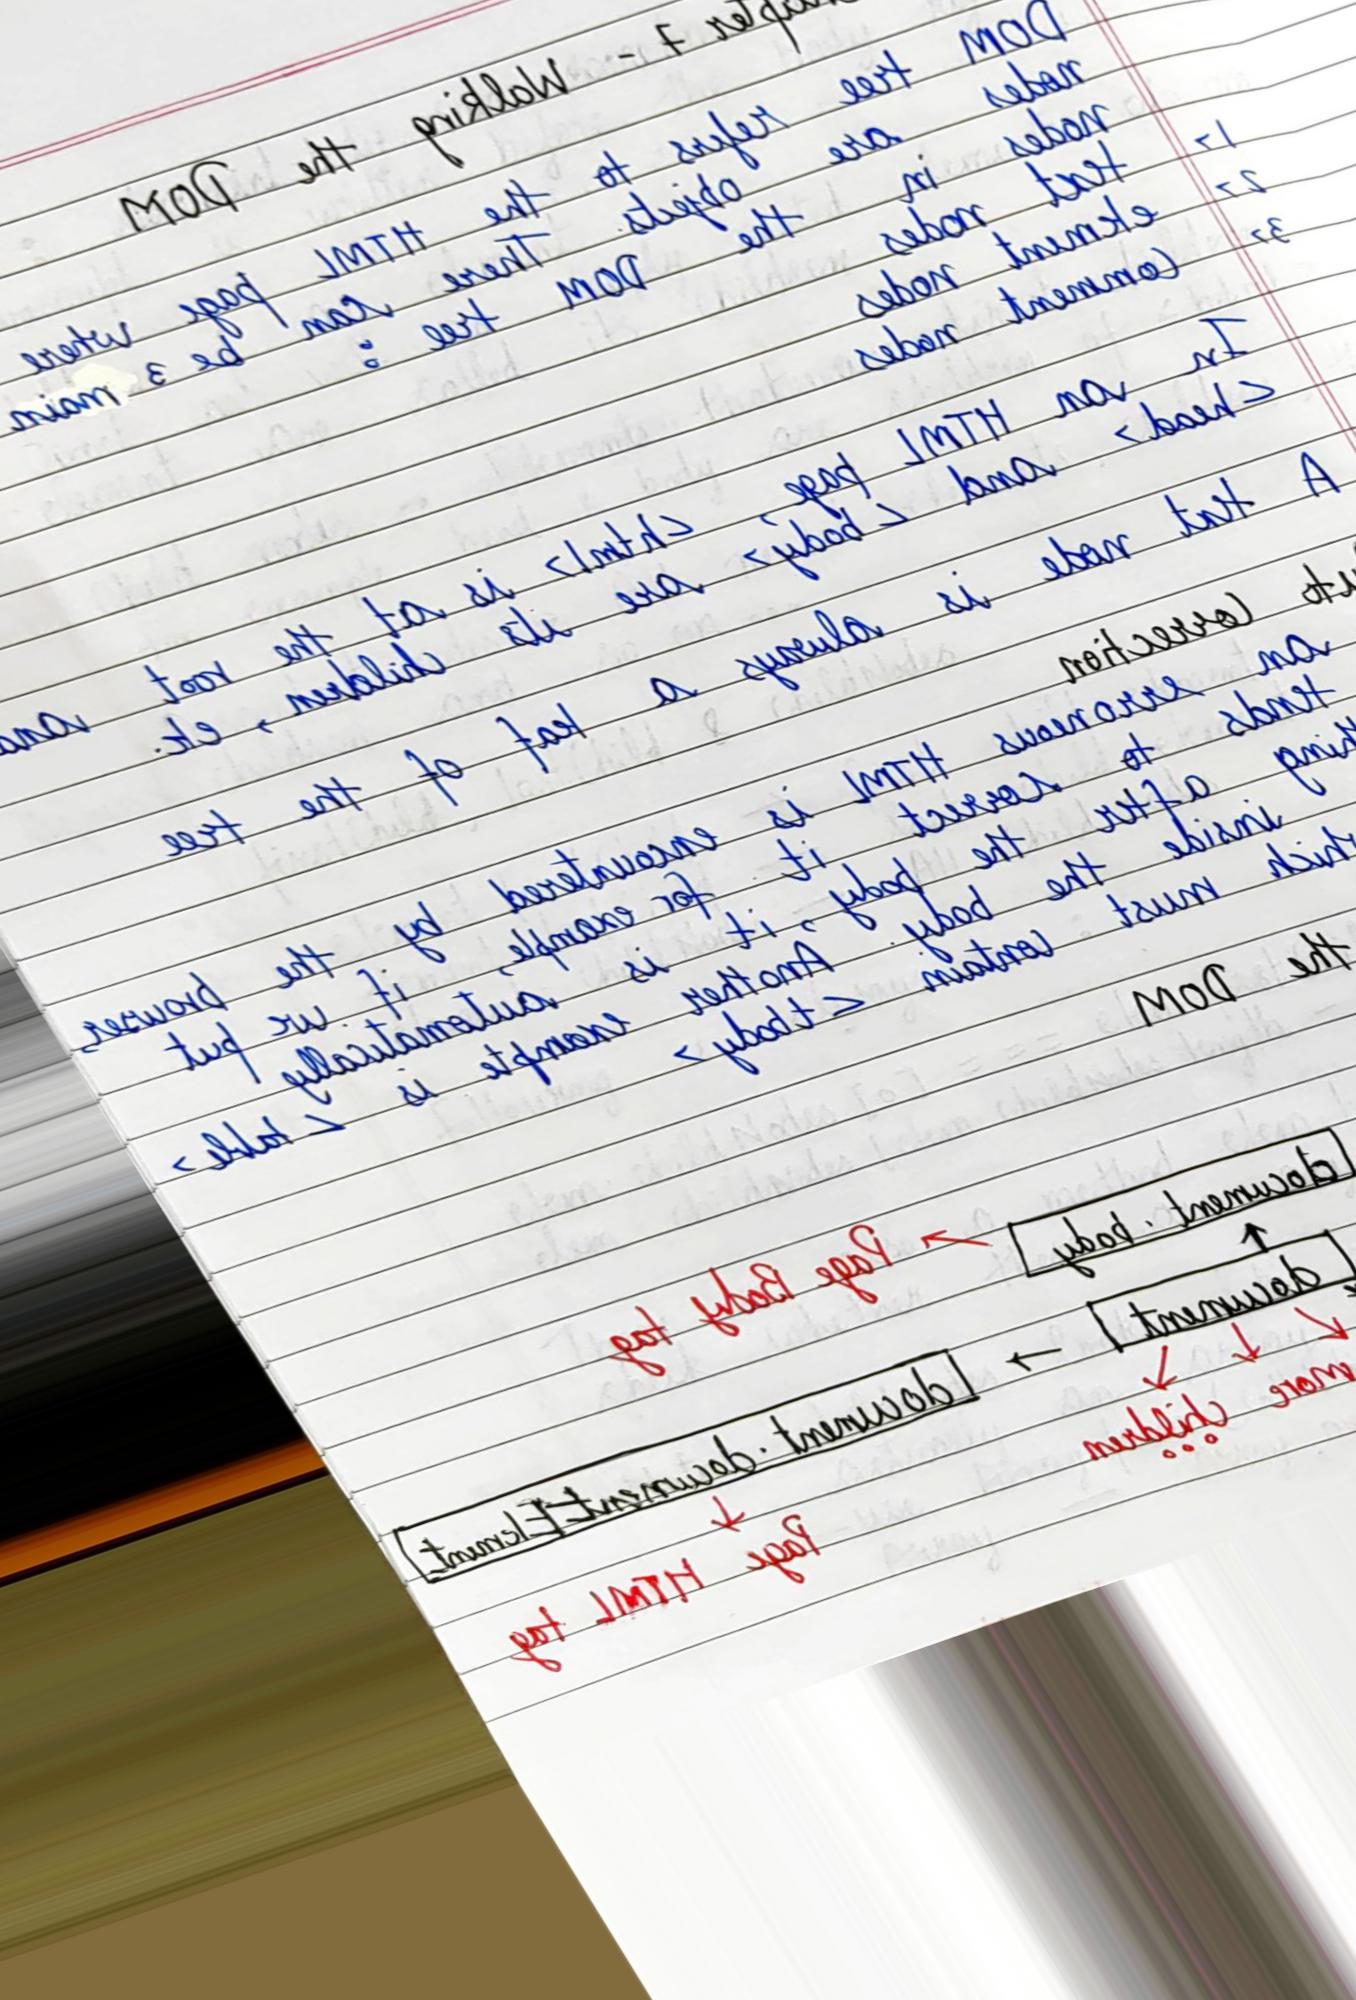 Chapter 7 - Walking the DOM
DOM tree refers to the HTML page where
nodes are objects. There can be 3 main
nodes in the DOM tree :
1> text nodes
2> element nodes
3> comment nodes
In an HTML page, <html> is at the root and
<head> and <body> are its children, etc.
A text node is always a leaf of the tree
correction
an erroneous HTML is encountered by the browser,
tends to correct it. for example, if we put
after the body, it is automatically
inside the body. Another example is <table>
which must contain <tbody>
the DOM
document.body → Page Body tag
↑
document → document.documentElement
↓ ↓ ↓ ↓
more children Page HTML tag